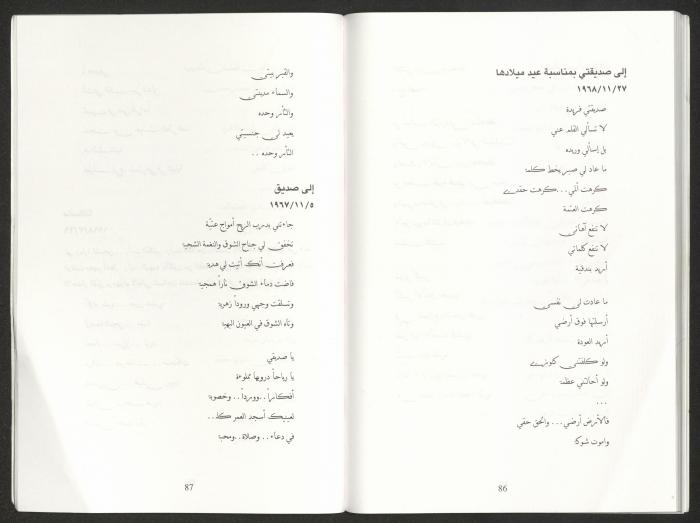 إلى صديقتي بمناسبة عيد ميلادها
١٩٦٨/١١/٢٧
صديقتي فريدة
لا تسألي القلم عني
بل إسألي وريده
ما عاد لي صبر يخط كلمة
كرهت ألمي...كرهت حقدي
كرهت العتمة
لا تنفع آهاتي
لا تنفع كلماتي
أريد بندقية
ما عادت لي نفسي
أرسلتها فوق أرضي
أريد العودة
ولو كلفتني
ولو أحالتني عظمة
...
فالأرض أرضي... والحق حقي
واموت شوكة
86
والقبر بيتي
والسماء مدينتي
والثأر وحده
يعيد لي جنسيتي
الثأر وحده ..
إلى صديق
١٩٦٧/١١/٥
جاءتني بدرب الريح أمواج عتية
تخفق لي جناح الشوق والنغمة الشجية
فعرفت أنك أتيت لي هدية
فاضت دماء الشوق ناراً همجية
وتسلقت وجهي وروداً زهرية
وتاه الشوق في العيون البهية
يا صديقي
يا رياحاً دروبها مملوءة
أفكاراً..وورداً.. وخصوبة
لعينيك أسجد العمر كله..
في دعاء.. وصلاة..ومحبة
87